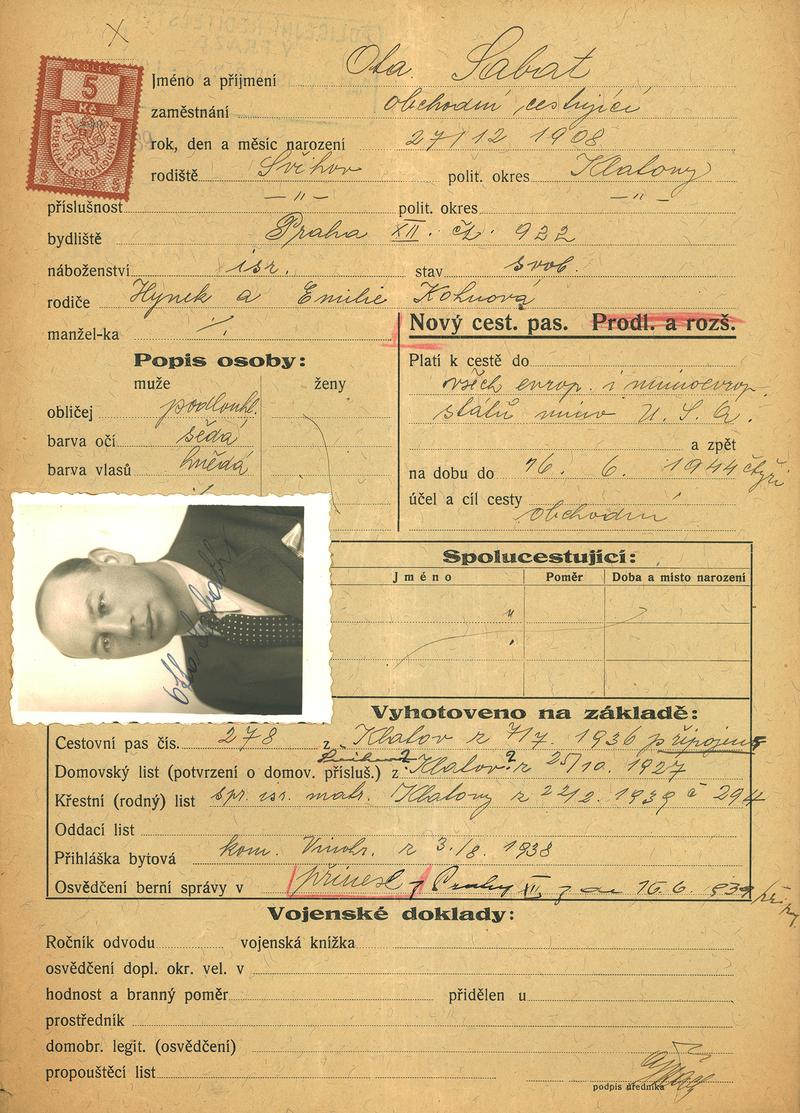 KOLEK
5
Kč
REPUBLIKA ČESKOSLOVENSKÁ
5 1938 5
Jméno a příjmení Ota Sabat
zaměstnání obchodní cestující
rok, den a měsíc narození 27/12 1908
rodiště Švihov polit. okres Klatovy
příslušnost —"— polit. okres —"—
bydliště Praha XII. čp. 922
náboženství isr. stav svob.
rodiče Hynek a Emilie Kohnová
manžel-ka ./.
Nový cest. pas. Prodl. a rozš.
Popis osoby:
muže ženy
obličej podlouhl.
barva očí šedá
barva vlasů hnědá
Platí k cestě do
všech evrop. i mimoevrop.
států mimo U. S. A.
a zpět
na dobu do 16. 6. 1944 čtyři
účel a cíl cesty
obchodní
Spolucestující:
Jméno Poměr Doba a místo narození
Vyhotoveno na základě:
Cestovní pas čís. 278 z Klatov z 7/7. 1936 připojen
Domovský list (potvrzení o domov. přísluš.) z Klatov? z 25/10. 1927
Křestní (rodný) list spr. isr. matr. Klatovy z 22/2. 1939 č 294
Oddací list
Přihláška bytová kom. Vinohr. z 3./8. 1938
Osvědčení berní správy v přinesl Prahy XII, z 16.6. 1939
Vojenské doklady:
Ročník odvodu vojenská knížka
osvědčení dopl. okr. vel. v
hodnost a branný poměr přidělen u
prostředník
domobr. legit. (osvědčení)
propouštěcí list
podpis úředníka